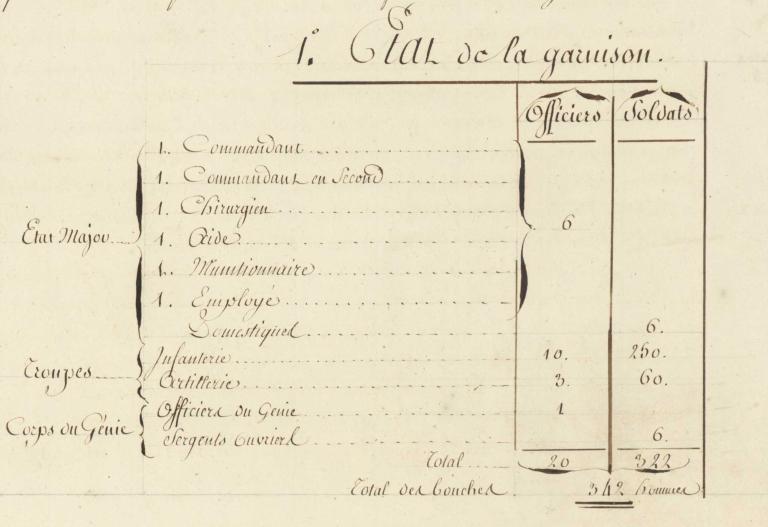 1º. Etat de la garnison.
Officiers Soldats
1. Commandant
1. Commandant en Second
1. Chirurgien
6
Etat Major 1. Aide
1. Munitionnaire
1. Employé
Domestiques 6.
Infanterie 10. 250.
Troupes
Artillerie 3. 60.
Officiers du Génie 1
Corps du Génie
Sergents ouvriers 6.
Total 20 322
Total des bouches. 342 hommes